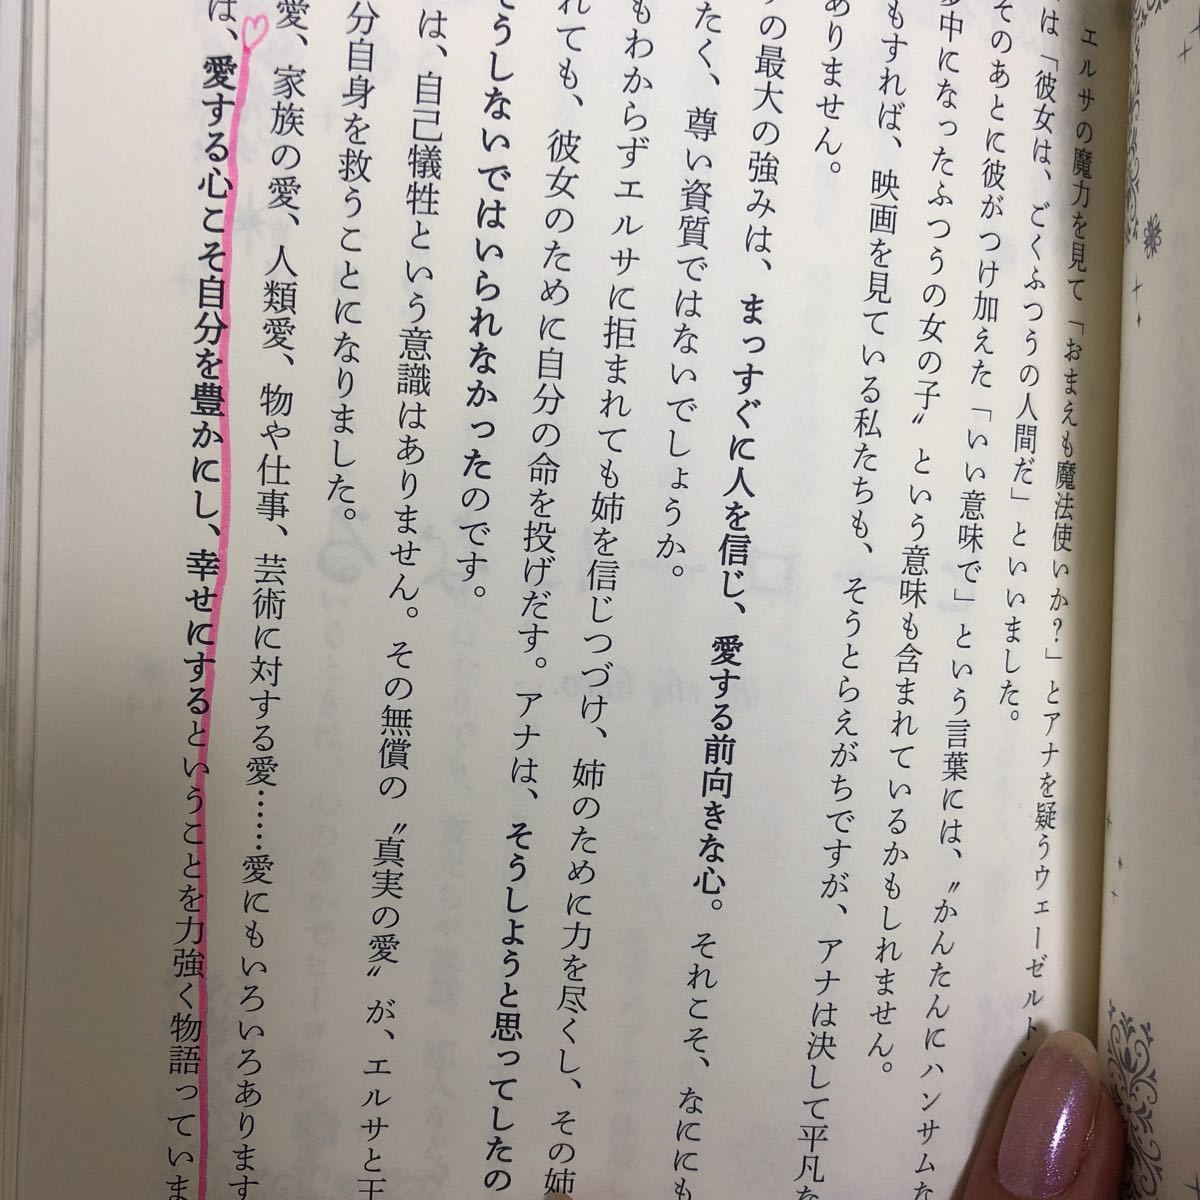 エルサの魔力を見て「おまえも魔法使いか？」とアナを疑うウェーゼルトン
は「彼女は、ごくふつうの人間だ」といいました。
そのあとに彼がつけ加えた「いい意味で」という言葉には、〝かんたんにハンサムな
中になったふつうの女の子〟という意味も含まれているかもしれません。
もすれば、映画を見ている私たちも、そうとらえがちですが、アナは決して平凡な
ありません。
の最大の強みは、まっすぐに人を信じ、愛する前向きな心。それこそ、なににも
たく、尊い資質ではないでしょうか。
もわからずエルサに拒まれても姉を信じつづけ、姉のために力を尽くし、その姉
れても、彼女のために自分の命を投げだす。アナは、そうしようと思ってしたの
そうしないではいられなかったのです。
は、自己犠牲という意識はありません。その無償の〝真実の愛〟が、エルサと王
分自身を救うことになりました。
愛、家族の愛、人類愛、物や仕事、芸術に対する愛……愛にもいろいろあります
は、愛する心こそ自分を豊かにし、幸せにするということを力強く物語っていま